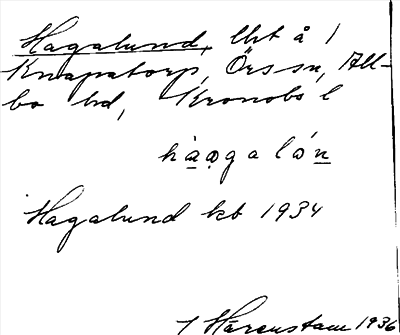 Hagalund, lht å 1
Knapatorp, Örs sn, All-
bo hd, Kronobs l
Hagalund kb 1934
1 Härenstam 1936